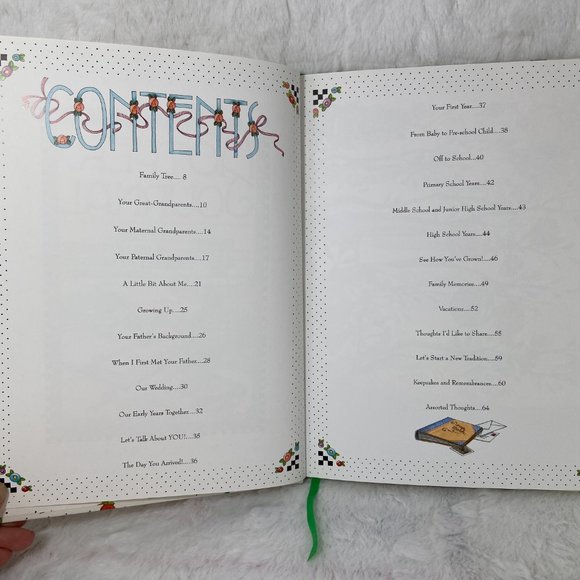 CONTENTS
Family Tree.... 8
Your Great-Grandparents....10
Your Maternal Grandparents....14
Your Paternal Grandparents....17
A Little Bit About Me....21
Growing Up....25
Your Father's Background....26
When I First Met Your Father....28
Our Wedding....30
Our Early Years Together....32
Let's Talk About YOU!....35
The Day You Arrived!....36
Your First Year....37
From Baby to Pre-school Child....38
Off to School....40
Primary School Years....42
Middle School and Junior High School Years....43
High School Years....44
See How You've Grown!....46
Family Memories....49
Vacations....52
Thoughts I'd Like to Share....55
Let's Start a New Tradition....59
Keepsakes and Remembrances....60
Assorted Thoughts....64